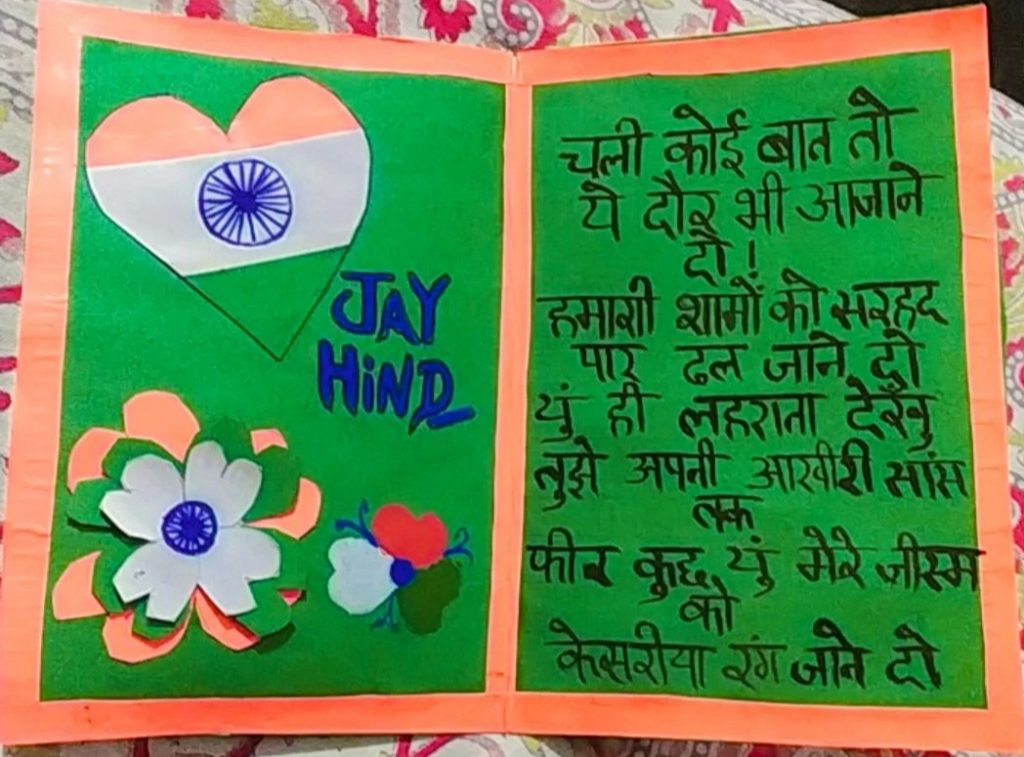 JAY
HiND
चली कोई बात तो
ये दौर भी आजाने
दो!
हमारी शामों को सरहद
पार ढल जाने दो
युं ही लहराता देखु
तुझे अपनी आखीरी सांस
तक
फीर कुछ युं मेरे जीस्म
को
केसरीया रंग जाने दो